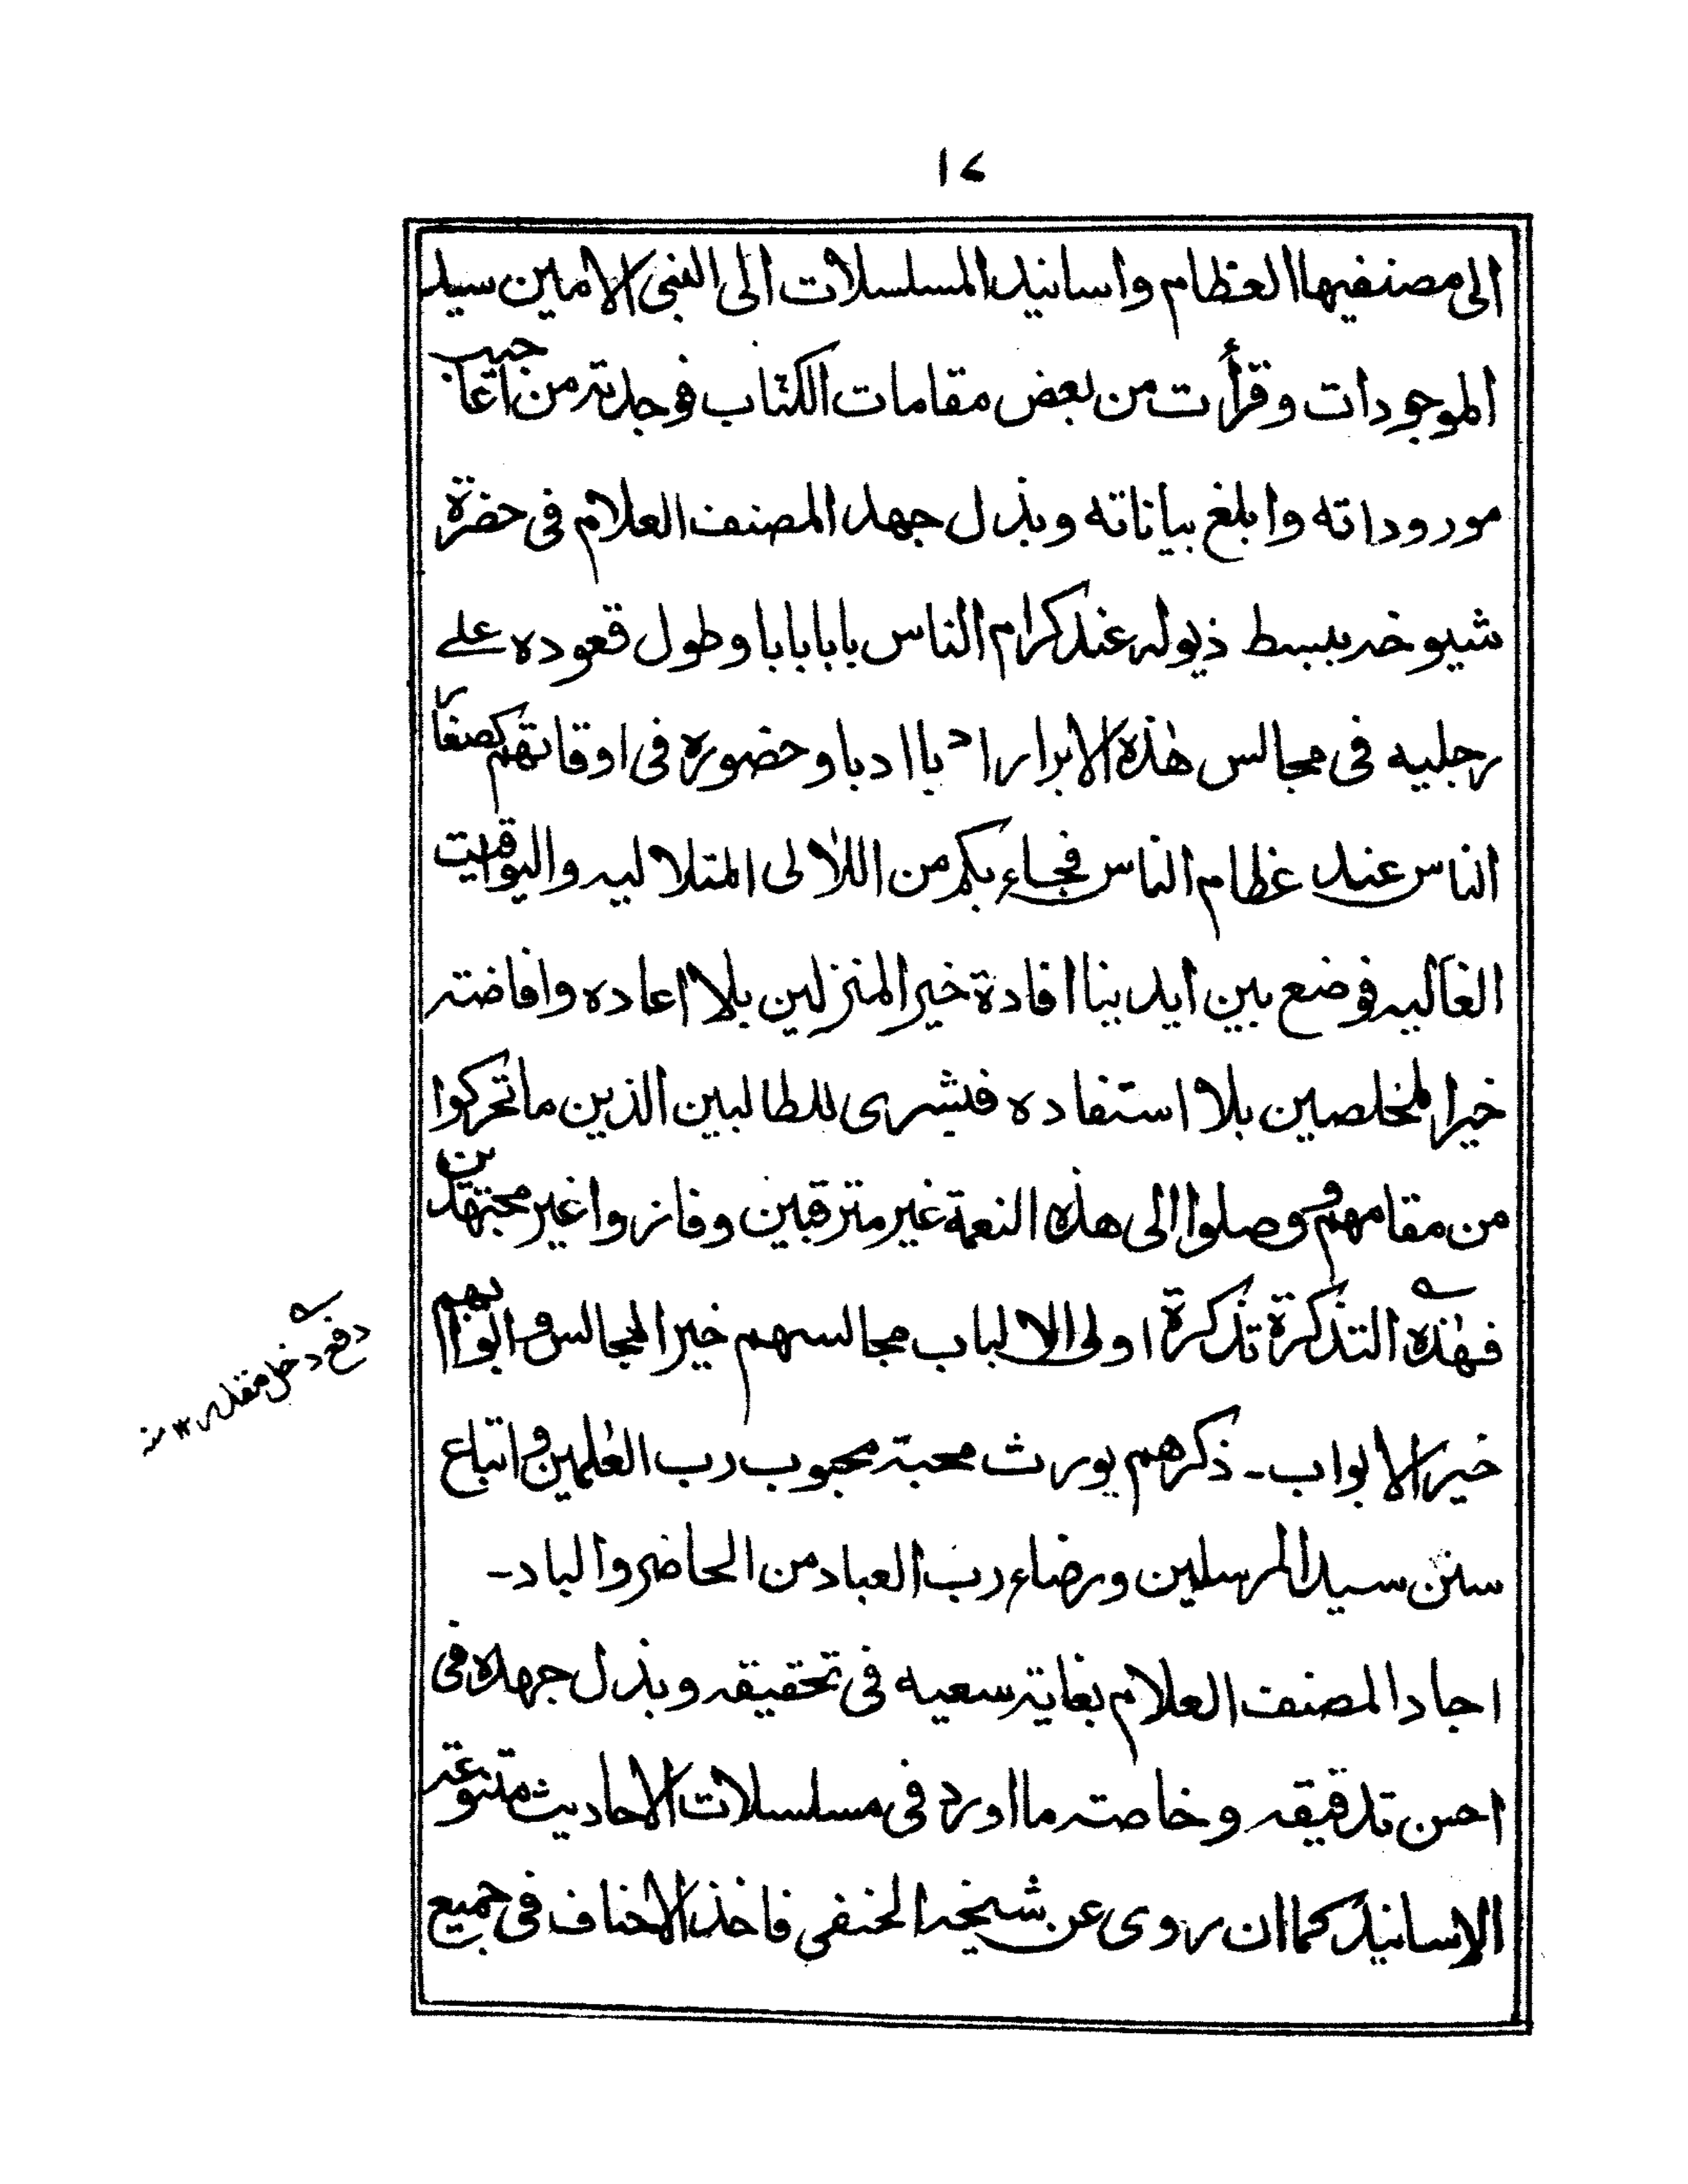 ١٧
الى مصنفيها العظام واسانيد المسلسلات الى النبى الامين سيد
الموجودات وقرأت من بعض مقامات الكتاب فوجدته من اعاجيب
موروداته وابلغ بياناته وبذل جهد المصنف العلام فى حضرة
شيوخه ببسط ذيوله عند كرام الناس بابا بابا وطول قعوده على
رجليه فى مجالس هذه الابرار ادبا ادبا وحضوره فى اوقاتهم كصغار
الناس عند عظام الناس فجاء بكم من اللالى المتلاليه واليواقيت
الغاليه فوضع بين ايدينا افادة خير المنزلين بلا اعاده وافاضته
خير المخلصين بلا استفاده فبشرى للطالبين الذين ما تحركوا
من مقامهم ووصلوا الى هذه النعمة غير مترقبين وفازوا غير مجتهدين
فهذه التذكرة تذكرة اولى الالباب مجالسهم خير المجالس وابوابهم
خير الابواب۔ ذكرهم يورث محبة محبوب رب العلمين واتباع
سنن سيد المرسلين ورضاء رب العباد من الحاضر والباد۔
اجاد المصنف العلام بغاية سعيه فى تحقيقه وبذل جهده فى
احسن تدقيقه وخاصته ما اورد فى مسلسلات الاحاديث متنوعة
الاسانيد كما ان روى عن شيخه الحنفى فاخذ الاحناف فى جميع
دفع دخل مقدر ١٢ منه